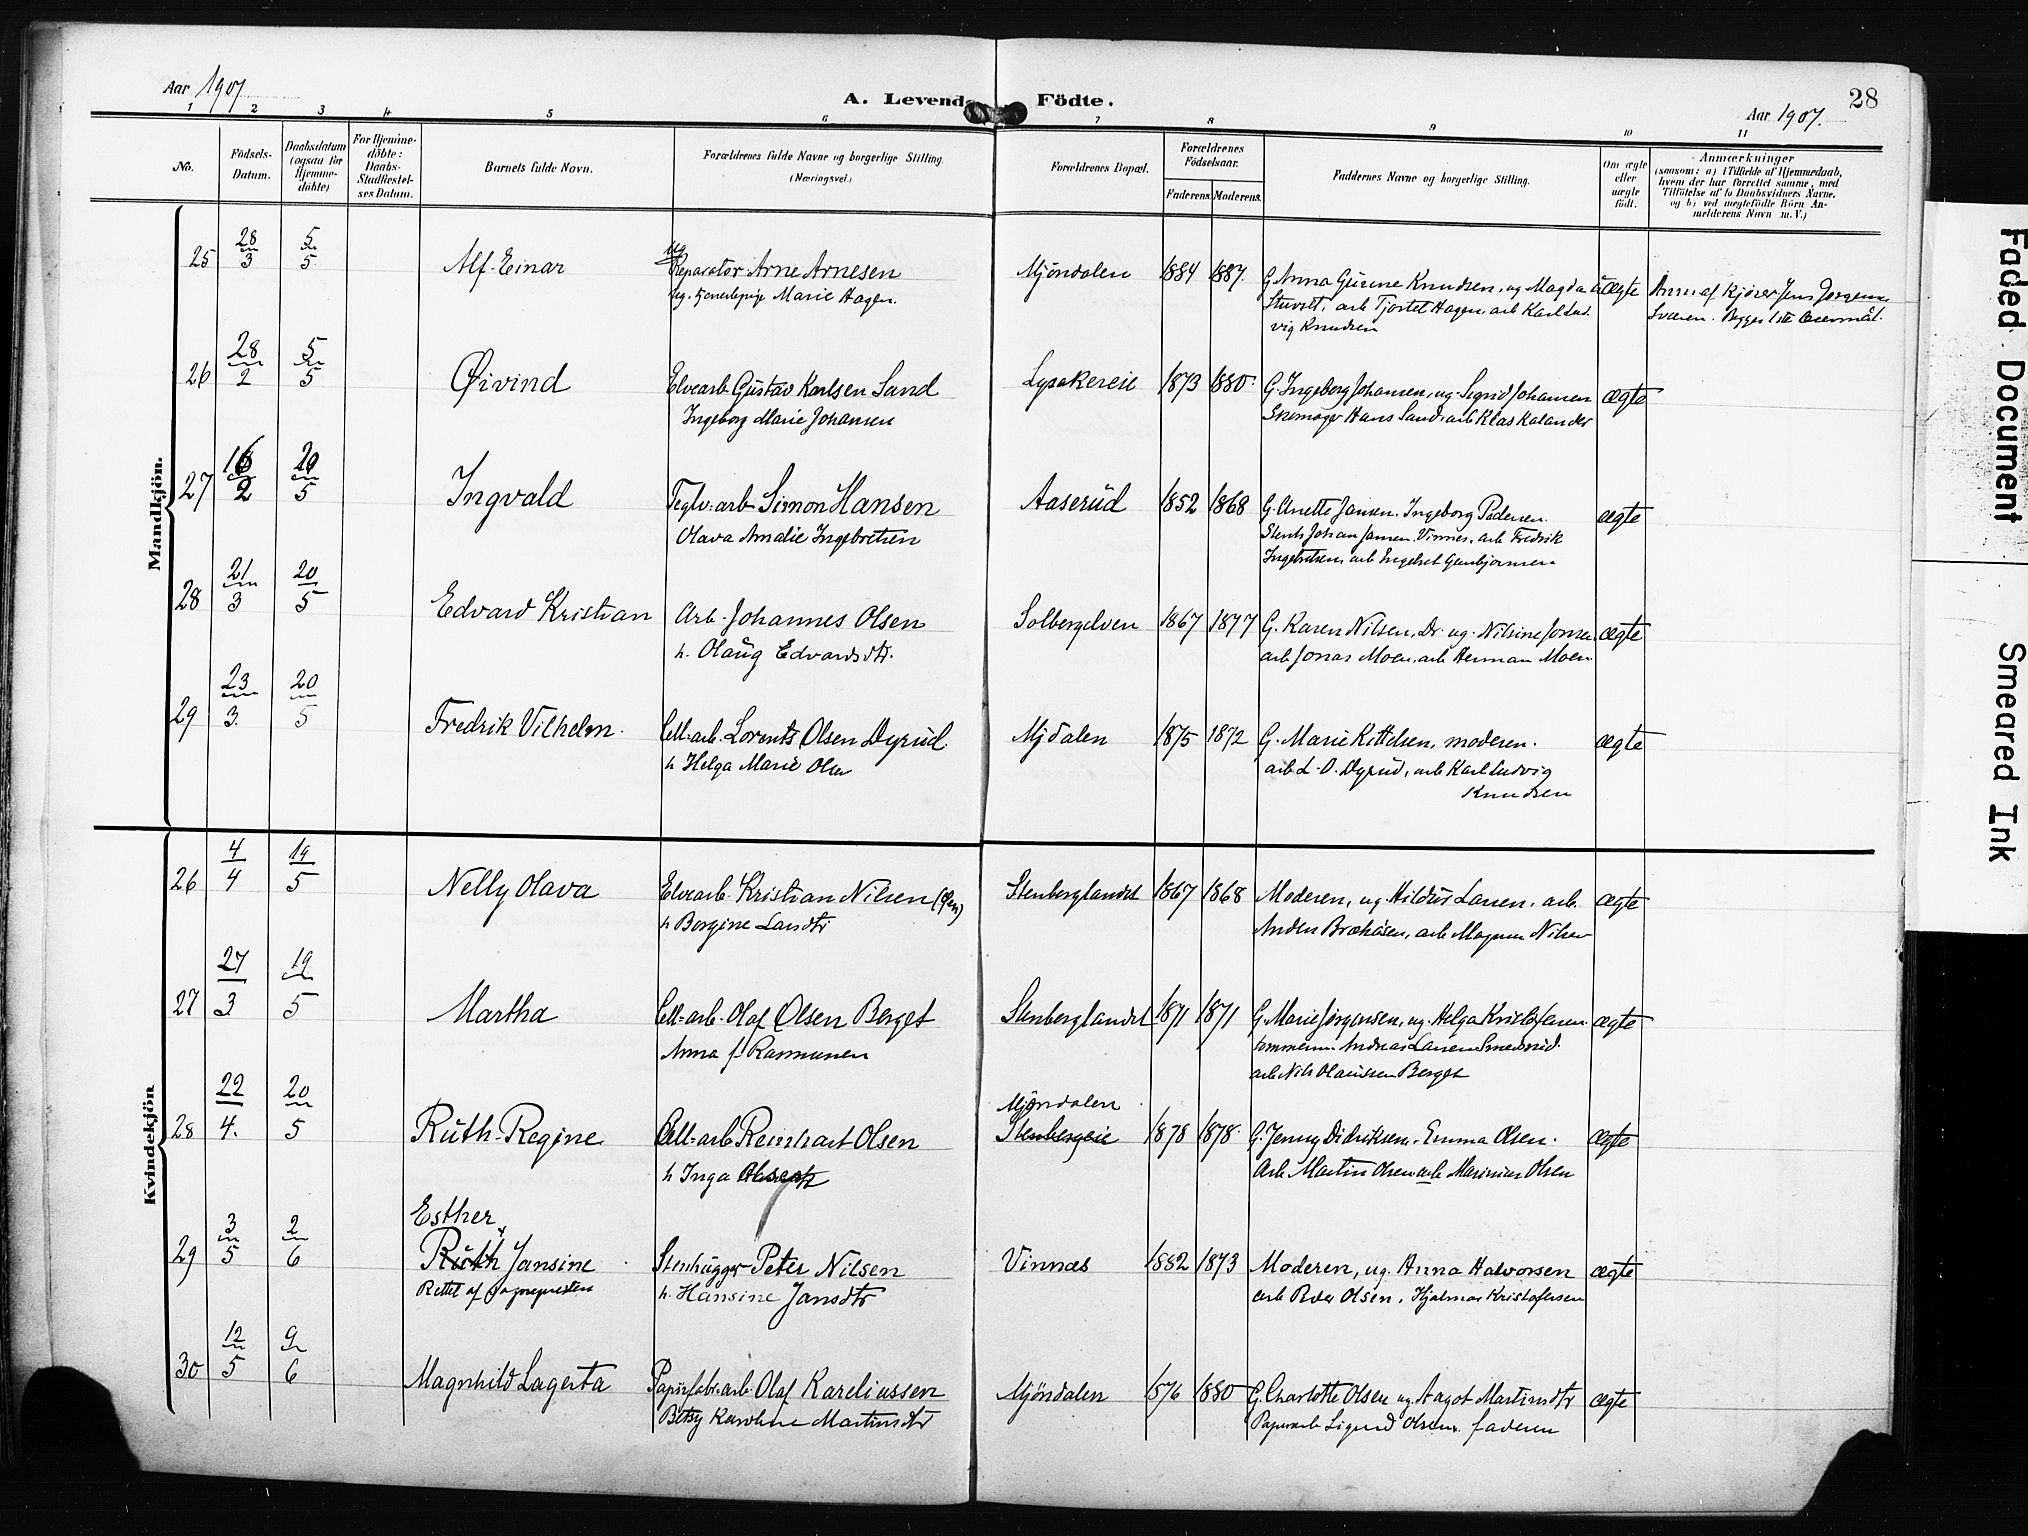 Aar 1907
A. Levende Födte.
Aar 1907.
28
1 2 3 4 5 6 7 8 9 10 11
No.
Födsels-Datum.
Daabsdatum (ogsaa for Hjemme-döbte)
For Hjemme-döbte: Daabs-Stadfæstel-ses Datum.
Barnets fulde Navn.
Forældrenes fulde Navne og borgerlige Stilling.
(Næringsvei.)
Forældrenes Bopæl.
Forældrenes Födselsaar.
Faderens. Moderens.
Faddernes Navne og borgerlige Stilling.
Om ægte eller uægte födt.
Anmærkninger
(saasom: a) i Tilfælde af Hjemmedaab,
hvem der har forrettet samme, med
Tilföielse af to Daabsvidners Navne,
og b) ved uegtefödte Börn An-
melderens Navn m. V.)
Mandkjön.
25 28/3 5/5 Alf Einar Ug Reparatör Arne Arnesen Mjöndalen 1884 1887. G. Anna Gurine Knudsen, ug Magda uægte
ug. tjenestepige Marie Hagen. arb Tjostel Hagen, arb Karl Lud-
vig Knudsen
Begges 1ste
26 28/2 5/5 Øivind Elvearb Gustav Karlsen Sand Lysakereie 1873 1880. G. Ingeborg Johansen, ug Sigrid Johansen ægte
Ingeborg Marie Johansen Skomager Hans Sand, arb Klas Kalander
27 16/2 20/5 Ingvald Teglv.arb Simon Hansen Aaserud 1852 1868 G. Anette Jansen. Ingeborg Pedersen. ægte
Olava Amalie Ingebretsen Johan Jansen Vinnes, arb Fredrik
Ingebretsen, arb Engebret
28 21/3 20/5 Edvard Kristian Arb. Johannes Olsen Solbergelven 1867 1877 G. Karen Nilsen, Dr. ug. Nilsine ægte
h. Olaug Edvardsdtr. arb Jonas Moen, arb Herman Moen
29 23/3. 20/5 Fredrik Vilhelm. Cell.arb. Lorents Olsen Dyrud. Mjdalen 1875 1872 G. Marie Kittelsen, moderen. ægte
h Helga Marie Olsen arb L. O. Dyrud, arb Karl Ludvig
Knudsen
Kvindekjön
26 4/4 19/5 Nelly Olava Elvearb Kristian Nilsen Stenberglandet 1867 1868 Moderen, ug. Larsen. arb. ægte
h Borgine Larsdtr arb Magnus Nilsen
27 27/3 19/5 Martha Cell.arb. Olaf Olsen Berget Stenberglandet 1871 1871 G. Marie Jørgensen, ug. Helga Kristofersen ægte
Anna f. Rasmussen Andreas Larsen
arb Nils Olaussen Berget
28 22/4. 20/5 Ruth Regine Cell.arb Reinhart Olsen Mjöndalen Stenbergeie 1878 1878. G. Jenny Didriksen, Emma Olsen. ægte
h Inga arb Martin Olsen arb Marinius Olsen
Esther
29 3/5 2/6 Ruth Jansine Stenhugger Peter Nilsen Vinnæs 1882 1873 Moderen, ug. Anna Halvorsen ægte
Rettet af sognepresten h. Hansine Jansdtr arb Peder Olsen, Hjalmar Kristofersen
30 12/5 9/6 Magnhild Lagerta Papirfabr.arb Olaf Kareliussen Mjöndalen 1876 1880 G. Charlotte Olsen ug Aagot Martinsdtr ægte
Betsy Karoline Martinsdtr Papirarb Sigurd Olsen. faderen
Faded Document
Smeared Ink